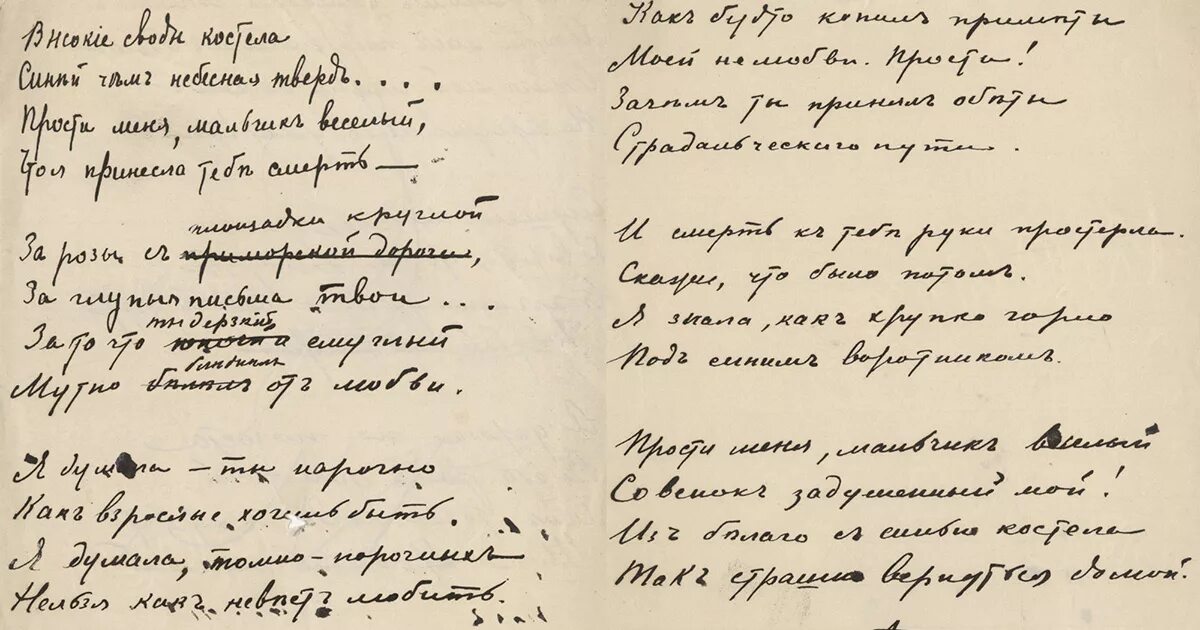 Высокіе своды костела
Синѣй чѣмъ небесная твердь. . . .
Прости меня, мальчикъ веселый,
Что я принесла тебѣ смерть —
площадки круглой
За розы съ приморской дороги,
За глупыя письма твои ...
ты дерзкій
За то что смуглый
блѣднѣлъ
Мутно отъ любви.
Я думала — ты нарочно
Какъ взрослые хочешь быть.
Я думала, томно-порочныхъ
Нельзя какъ невѣстъ любить.
Какъ будто копилъ примѣты
Моей нелюбви. Прости!
Зачѣмъ ты принялъ обѣты
Страдальческаго пути.
И смерть къ тебѣ руки простерла.
Скажи, что было потомъ.
Я знала, какъ хрупко горло
Подъ синимъ воротникомъ.
Прости меня, мальчикъ веселый
Совенокъ задушенный мой!
Изъ бѣлаго съ синью костела
Такъ страшно вернуться домой.